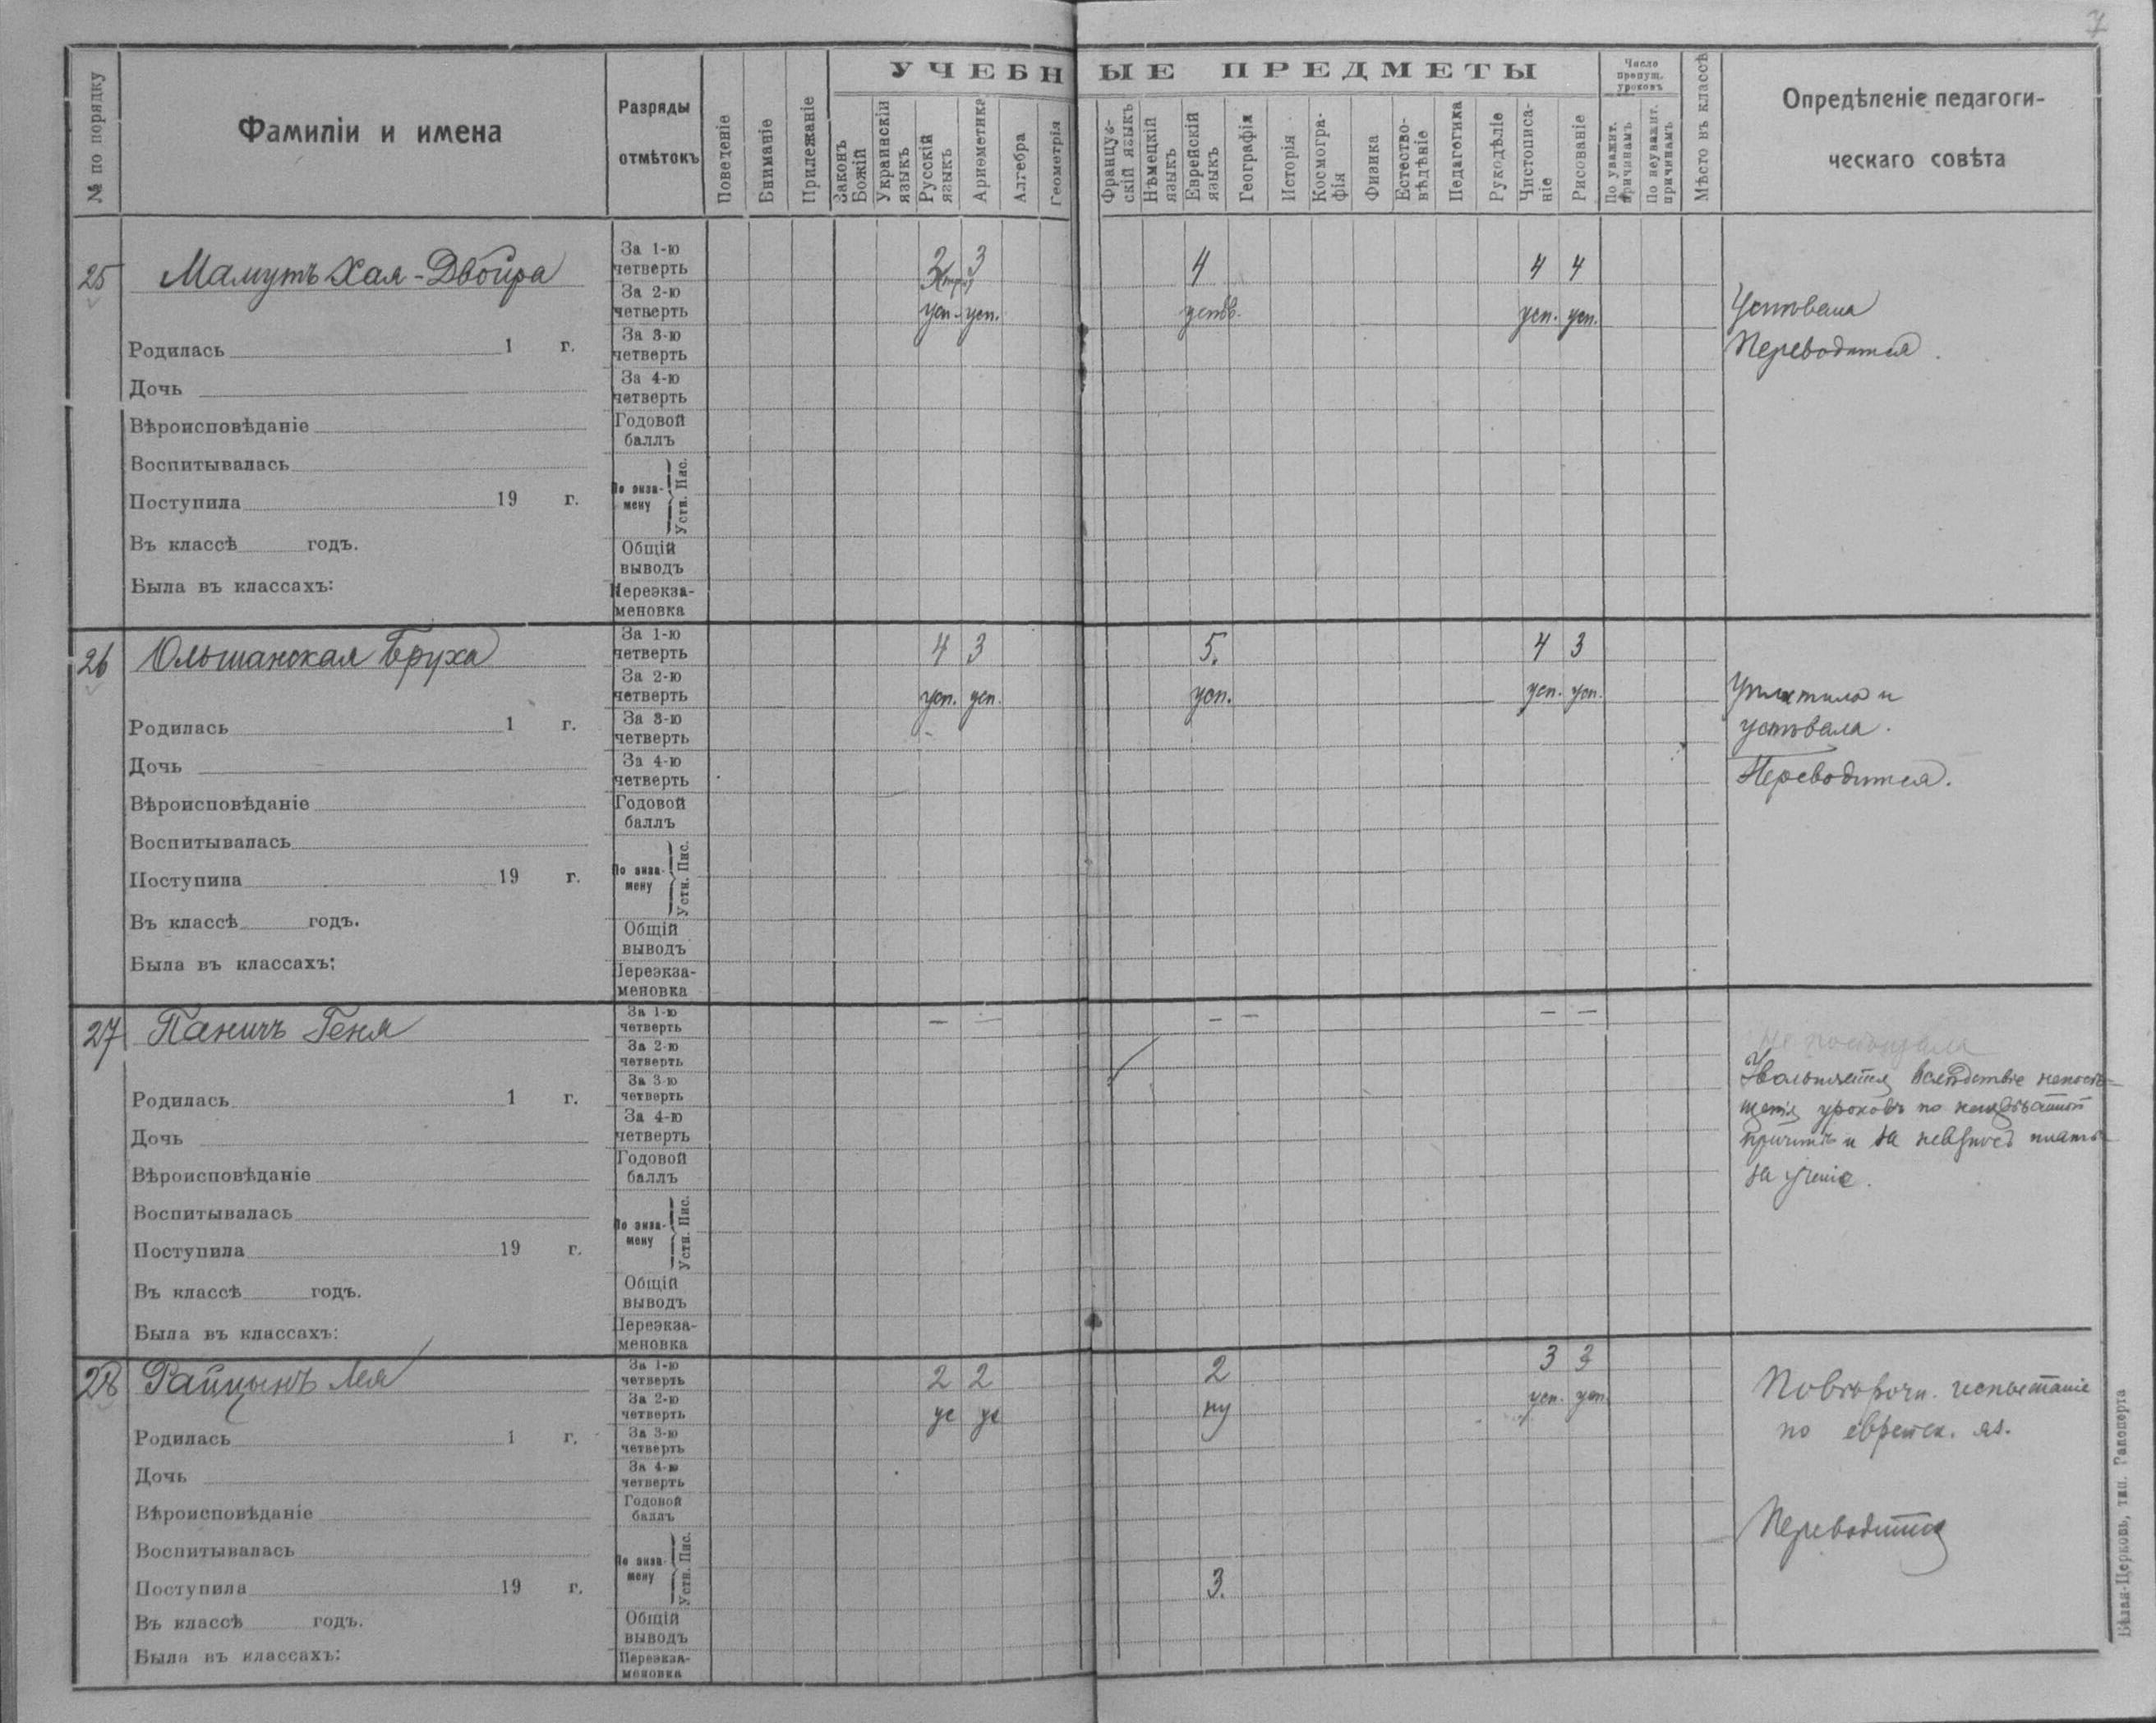 7
№ по порядку
Фамиліи и имена
Разряды
отмѣтокъ
Поведеніе
Вниманіе
Прилежаніе
УЧЕБНЫЕ ПРЕДМЕТЫ
Законъ Божій
Украинскій языкъ
Русскій языкъ
Ариѳметика
Алгебра
Геометрія
Француз-
скій языкъ
Нѣмецкій языкъ
Еврейскій языкъ
Географія
Исторія
Космогра-
фія
Физика
Естество-
вѣдѣніе
Педагогика
Рукодѣліе
Чистописа-
ніе
Рисованіе
Число
пропущ.
уроковъ
По уважит. причинамъ
По неуважит. причинамъ
Мѣсто въ классѣ
Опредѣленіе педагоги-
ческаго совѣта
25 Мамутъ Хая-Двойра
Родилась 1 г.
Дочь
Вѣроисповѣданіе
Воспитывалась
Поступила 19 г.
Въ классѣ годъ.
Была въ классахъ:
За 1-ю четверть 3 4 4 4
За 2-ю четверть усп. усп. усп. усп.
За 3-ю четверть
За 4-ю четверть
Годовой баллъ
По экза-
мену Устн. Пис.
Общій выводъ
Переэкза-
меновка
Успѣвала
Переводится.
26 Ольшанская Бруха
Родилась 1 г.
Дочь
Вѣроисповѣданіе
Воспитывалась
Поступила 19 г.
Въ классѣ годъ.
Была въ классахъ:
За 1-ю четверть 4 3 5. 4 3
За 2-ю четверть усп. усп. усп. усп. усп.
За 3-ю четверть
За 4-ю четверть
Годовой баллъ
По экза-
мену Устн. Пис.
Общій выводъ
Переэкза-
меновка
и
успѣвала.
Переводится.
27 Паничъ Геня
Родилась 1 г.
Дочь
Вѣроисповѣданіе
Воспитывалась
Поступила 19 г.
Въ классѣ годъ.
Была въ классахъ:
За 1-ю четверть — — — — — —
За 2-ю четверть
За 3-ю четверть
За 4-ю четверть
Годовой баллъ
По экза-
мену Устн. Пис.
Общій выводъ
Переэкза-
меновка
Не посѣщала
Увольняется вслѣдствіе непосѣ-
щенія уроковъ по неизвѣстной
причинѣ и за невзносъ платы
за ученіе.
28 Райцынъ Лея
Родилась 1 г.
Дочь
Вѣроисповѣданіе
Воспитывалась
Поступила 19 г.
Въ классѣ годъ.
Была въ классахъ:
За 1-ю четверть 2 2 2 3 3
За 2-ю четверть ус ус ну усп. усп.
За 3-ю четверть
За 4-ю четверть
Годовой баллъ
По экза-
мену Устн. Пис. 3.
Общій выводъ
Переэкза-
меновка
испытаніе
по еврейск. яз.
Переводится
Бѣлая-Церковь, тип. Рапопорта